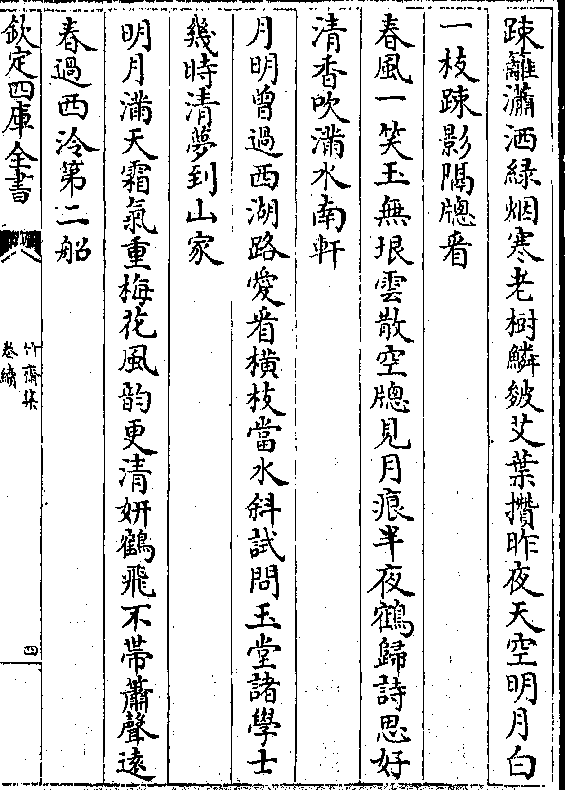 踈籬瀟洒緑烟寒老樹鱗皴艾葉攅昨夜天空明月白
一枝踈影隔牕看
春風一笑玉無垠雲散空牕見月痕半夜鶴歸詩思好
清香吹滿水南軒
月明曾過西湖路愛看横枝當水斜試問玉堂諸學士
幾時清夢到山家
明月滿天霜氣重梅花風韵更清妍鶴飛不帶簫聲逺
春過西泠第二船
欽定四庫全書
竹齋集
卷續
四